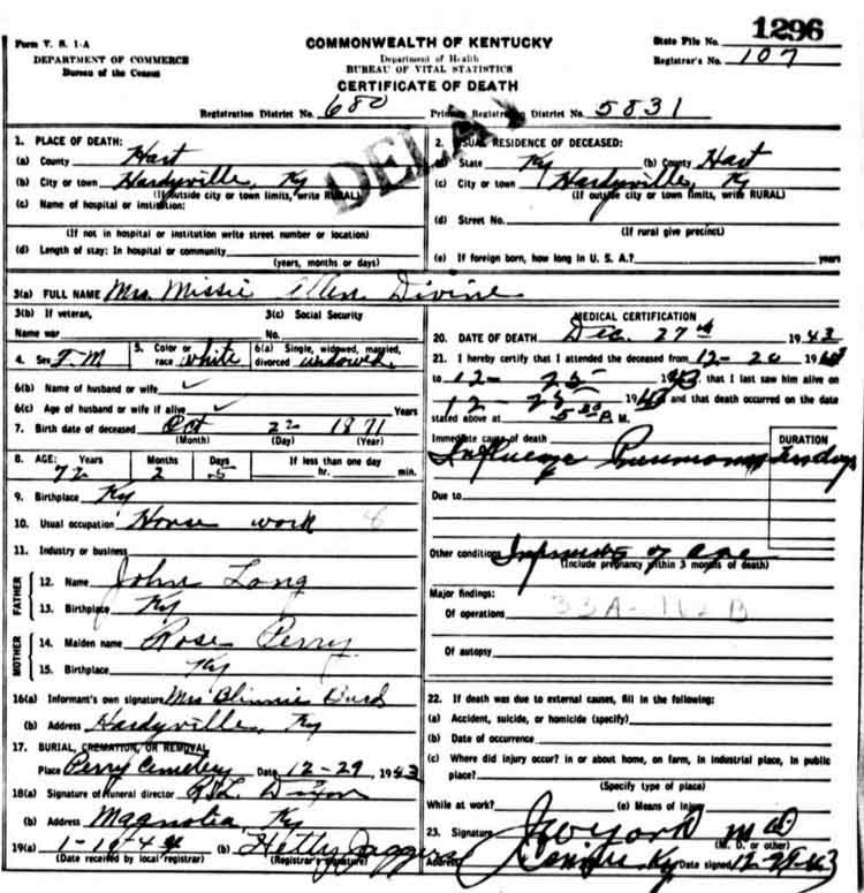 1296
Form V. S. 1-A
DEPARTMENT OF COMMERCE
Bureau of the Census
COMMONWEALTH OF KENTUCKY
Department of Health
BUREAU OF VITAL STATISTICS
CERTIFICATE OF DEATH
State File No.
Registrar's No. 107
Registration District No. 680
Primary Registration District No. 5831
DELAY
1. PLACE OF DEATH:
(a) County Hart
(b) City or town Hardyville, Ky
(If outside city or town limits, write RURAL)
(c) Name of hospital or institution:
(If not in hospital or institution write street number or location)
(d) Length of stay: In hospital or community
(years, months or days)
2. USUAL RESIDENCE OF DECEASED:
(a) State Ky (b) County Hart
(c) City or town Hardyville, Ky
(If outside city or town limits, write RURAL)
(d) Street No.
(If rural give precinct)
(e) If foreign born, how long in U. S. A.? years
3(a) FULL NAME Mrs. Missie Ellen Divine
3(b) If veteran,
Name war
3(c) Social Security
No.
4. Sex F-M
5. Color or race white
6(a) Single, widowed, married, divorced widowed
6(b) Name of husband or wife ✓
6(c) Age of husband or wife if alive ✓ Years
7. Birth date of deceased Oct 22 1871
(Month) (Day) (Year)
8. AGE: Years Months Days If less than one day
72 2 5 hr. min.
9. Birthplace Ky
10. Usual occupation House work
11. Industry or business
FATHER
12. Name John Long
13. Birthplace Ky
MOTHER
14. Maiden name Rose Perry
15. Birthplace Ky
16(a) Informant's own signature Mrs
(b) Address Hardyville, Ky
17. BURIAL, CREMATION, OR REMOVAL
Place Perry Cemetery Date 12-29, 1943
18(a) Signature of funeral director Dixon
(b) Address Magnolia, Ky
19(a) (b) Hetty Jaggers
(Date received by local registrar) (Registrar's signature)
MEDICAL CERTIFICATION
20. DATE OF DEATH Dec. 27th 1943
21. I hereby certify that I attended the deceased from 12- 20 1943
to 12- 25 1943, that I last saw him alive on
12- 25 1943 and that death occurred on the date
stated above at P.M.
Immediate cause of death
DURATION
Influenza Pneumonia
Due to
Other conditions of age
(Include pregnancy within 3 months of death)
Major findings:
Of operations
Of autopsy
22. If death was due to external causes, fill in the following:
(a) Accident, suicide, or homicide (specify)
(b) Date of occurrence
(c) Where did injury occur? in or about home, on farm, in industrial place, in public
place?
(Specify type of place)
While at work? (e) Means of Injury
23. Signature York M D
(M. D. or other)
Address Ky Date signed 12-29-43